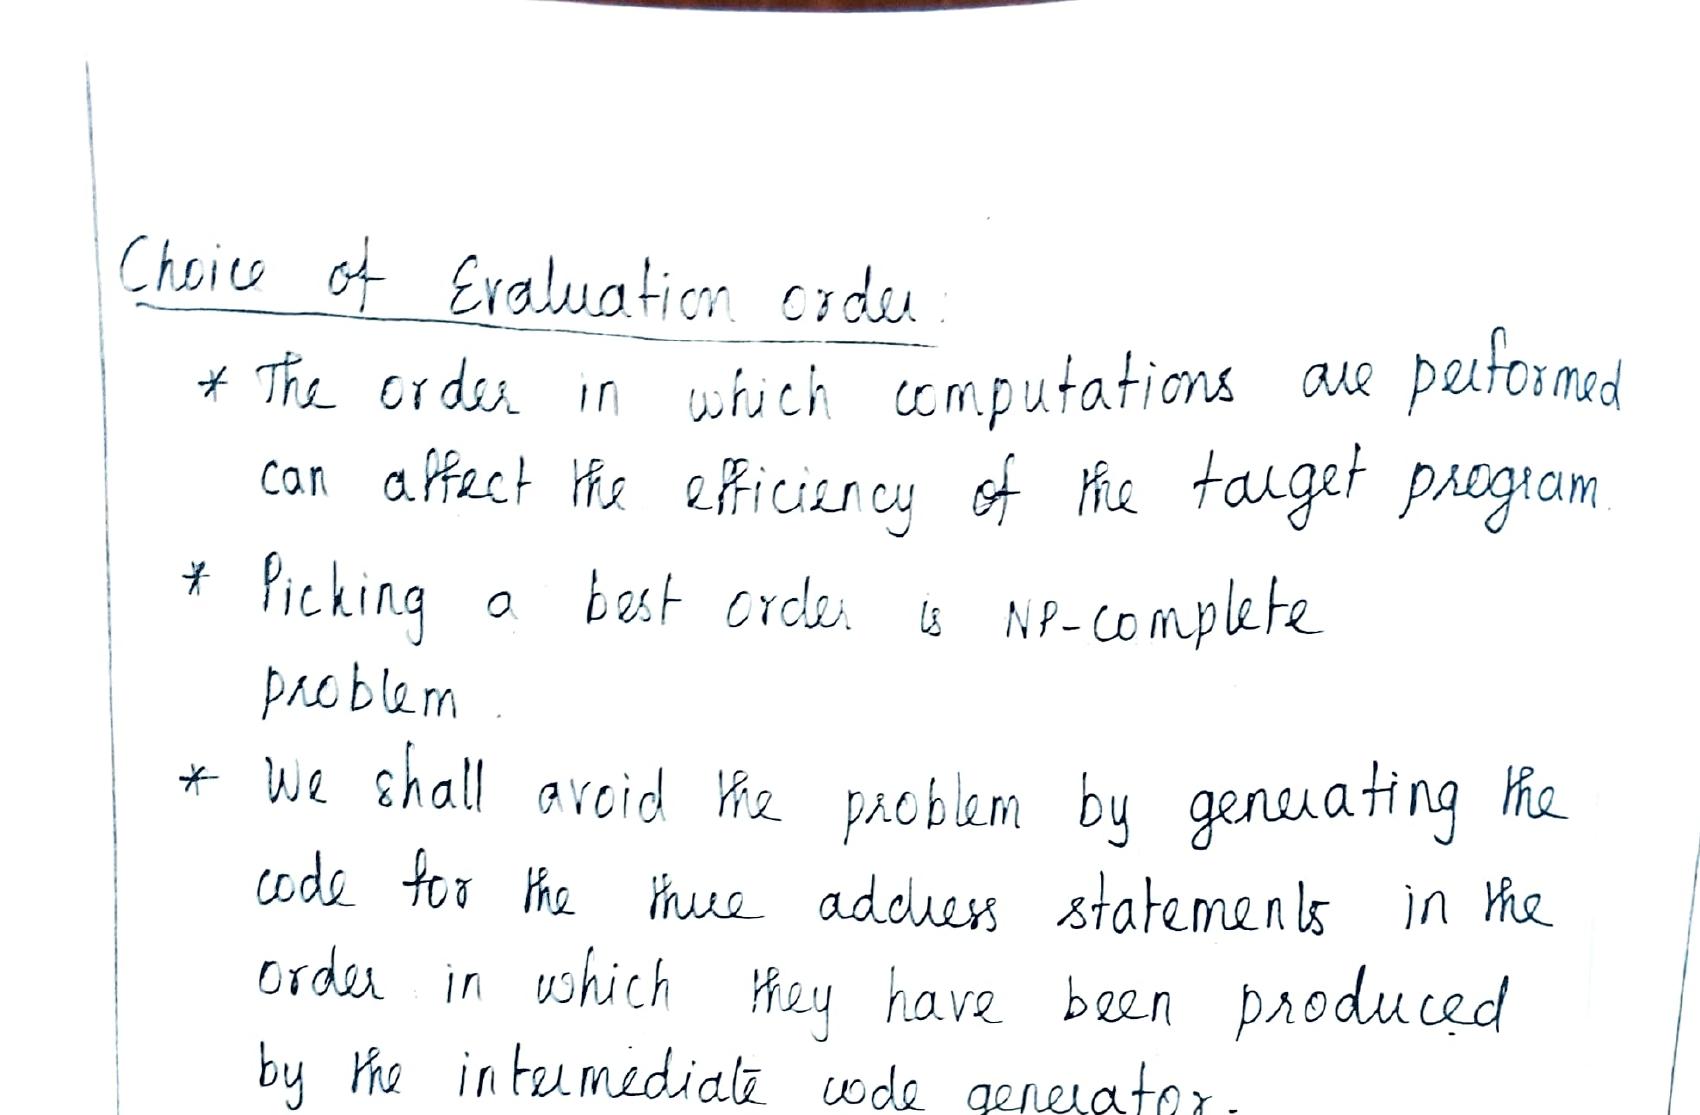 Choice of Evaluation order:
* The order in which computations are performed
can affect the efficiency of the target program.
* Picking a best order is NP-complete
problem.
* We shall avoid the problem by generating the
code for the three address statements in the
order in which they have been produced
by the intermediate code generator.